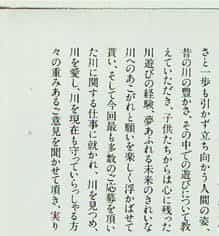 さと一歩も引かず立ち向かう人間の姿、
昔の川の豊かさ、その中での遊びについて教
えていただき、子供たちからは心に残った
川遊びの経験、夢あふれる未来のきれいな
川へのあこがれと願いを楽しく浮かばせて
貰い、そして今回最も多数のご応募を頂い
た川に関する仕事に就かれ、川を見つめ、
川を愛し、川を現在も守っていらっしゃる方
々の重みあるご意見を聞かせて頂き、実り